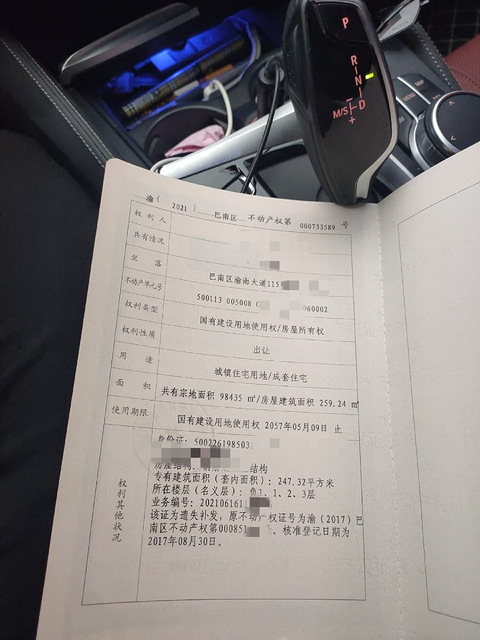 P
R
N
D
M/S
+
渝( 2021 ) 巴南区 不动产权第 000733589 号
权利人
共有情况
坐落 巴南区渝南大道115
不动产单元号 500113 005008 060002
权利类型 国有建设用地使用权/房屋所有权
权利性质 出让
用途 城镇住宅用地/成套住宅
面积 共有宗地面积 98435 ㎡/房屋建筑面积 259.24 ㎡
使用期限 国有建设用地使用权 2057年05月09日 止
权利其他状况
身份证: 5002261985031
房屋结构: 结构
专有建筑面积(套内面积): 247.32平方米
所在楼层(名义层): 负1、1、2、3层
业务编号: 202106161
该证为遗失补发, 原不动产权证号为渝(2017)巴
南区不动产权第00085 。核准登记日期为
2017年08月30日。